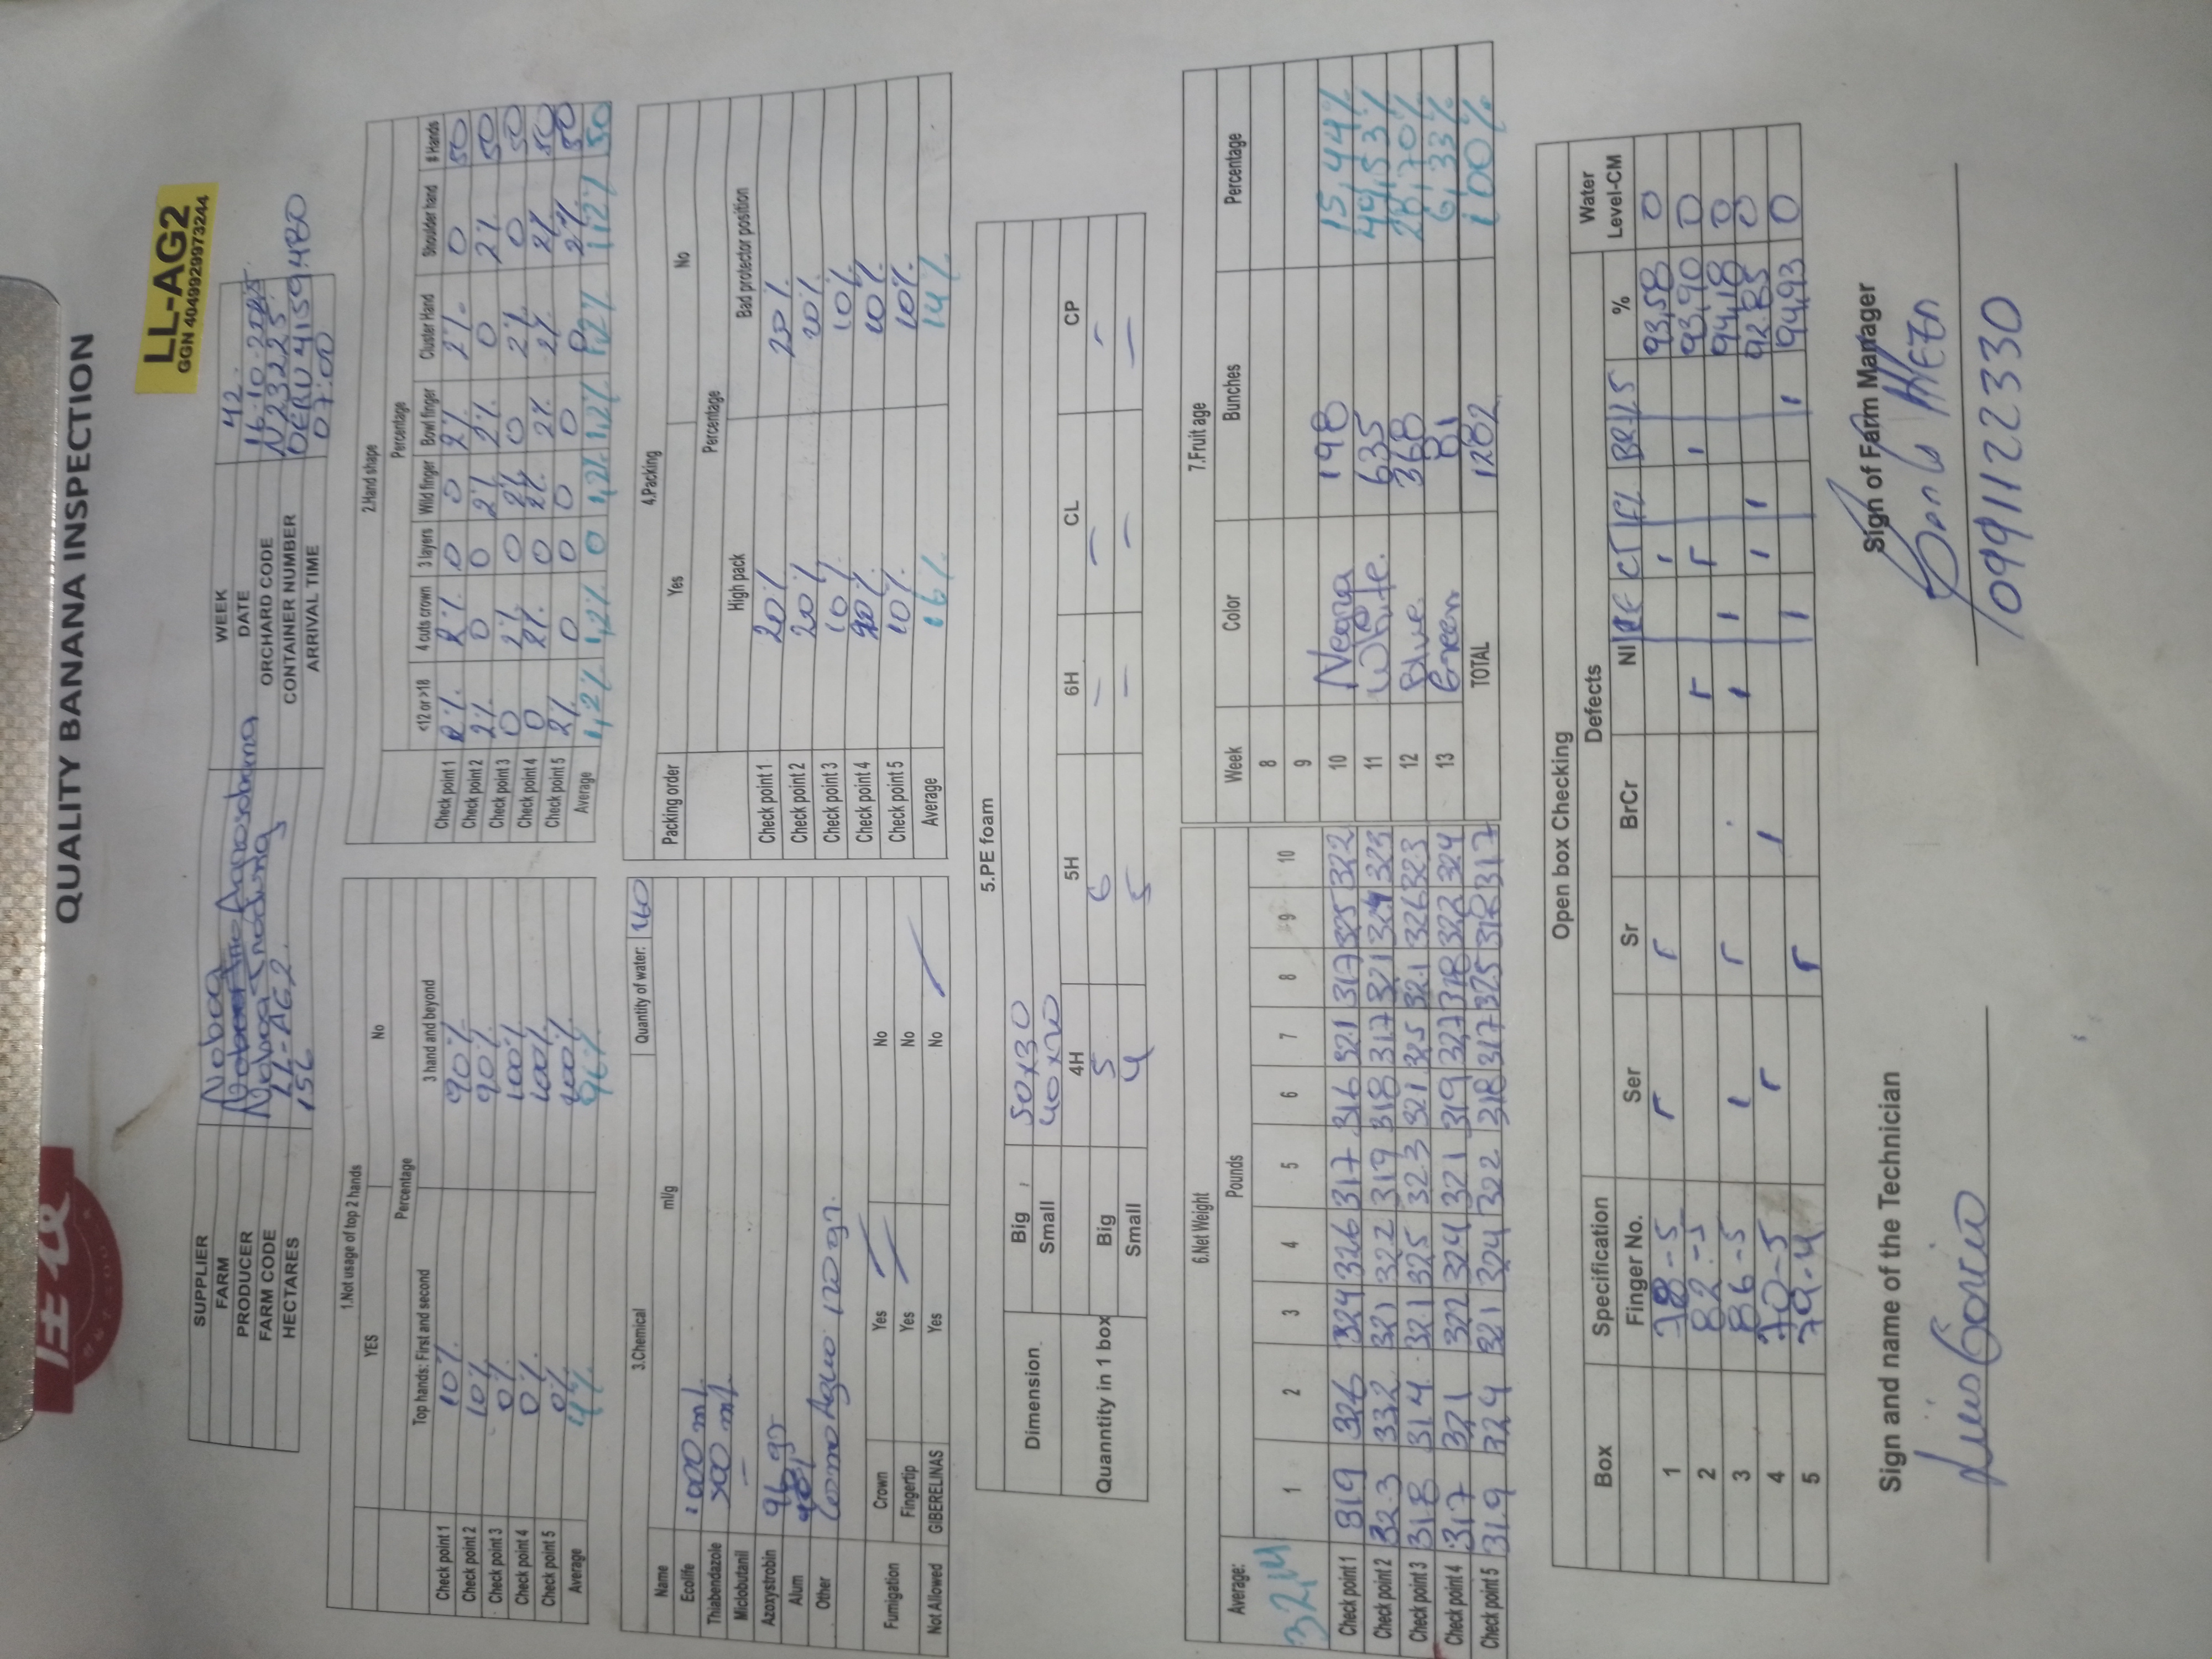 佳农
QUALITY BANANA INSPECTION
LL-AG2
GGN 4049929973244
SUPPLIER Noboa WEEK 42
FARM Agrosobama DATE 16-10-2025
PRODUCER Noboa Trading ORCHARD CODE N23225
FARM CODE LL-AG2. CONTAINER NUMBER OERU 4159480
HECTARES 156 ARRIVAL TIME 07:00
1.Not usage of top 2 hands
YES No
Percentage
Top hands: First and second 3 hand and beyond
Check point 1 10% 90%
Check point 2 10% 90%
Check point 3 0% 100%
Check point 4 0% 100%
Check point 5 0% 100%
Average 4% 96%
2.Hand shape
Percentage
<12 or >18 4 cuts crown 3 layers Wild finger Bowl finger Cluster Hand Shoulder hand # Hands
Check point 1 2% 2% 0 0 2% 2% 0 50
Check point 2 2% 0 0 2% 2% 0 2% 50
Check point 3 0 2% 0 2% 0 2% 0 50
Check point 4 0 2% 0 2% 2% 2% 2% 50
Check point 5 2% 0 0 0 0 0 2% 50
Average 1,2% 1,2% 0 1,2% 1,2% 1,2% 1,2% 50
3.Chemical Quantity of water: 160
Name ml/g
Ecolife 1000 ml
Thiabendazole 500 ml
Miclobutanil —
Azoxystrobin 96 gr
Alum
Other Cosmo Aguo 120 gr.
Fumigation Crown Yes No
Fingertip Yes No
Not Allowed GIBERELINAS Yes No
4.Packing
Packing order Yes No
Percentage
High pack Bad protector position
Check point 1 20% 20%
Check point 2 20% 20%
Check point 3 10% 10%
Check point 4 20% 10%
Check point 5 10% 10%
Average 16% 14%
5.PE foam
Dimension Big 50x30
Small 40x20
4H 5H 6H CL CP
Quanntity in 1 box Big 5 6 — — —
Small 4 5 — — —
6.Net Weight
Average: Pounds
32,14 1 2 3 4 5 6 7 8 9 10
Check point 1 319 326 324 326 317 316 32.1 317 325 322
Check point 2 32.3 332 321 322 319 318 317 321 324 323
Check point 3 318 314 32.1 325 323 321 325 32.1 326 323
Check point 4 317 321 322 324 321 319 327 318 322 324
Check point 5 319 324 321 324 322 318 317 325 318 317
7.Fruit age
Week Color Bunches Percentage
8
9
10 Negra 198 15,44%
11 White. 635 49,53%
12 Blue 368 28,70%
13 Green 81 6,33%
TOTAL 1282 100%
Open box Checking
Box Specification Defects Water Level-CM
Finger No. Ser Sr BrCr NI CT FL BR LS %
1 78-5 93,58 0
2 82-5 93,90 0
3 86-5 94,18 0
4 70-5 92.85 0
5 79-4 94,93 0
Sign and name of the Technician
Luis Garcia
Sign of Farm Manager
0991122330